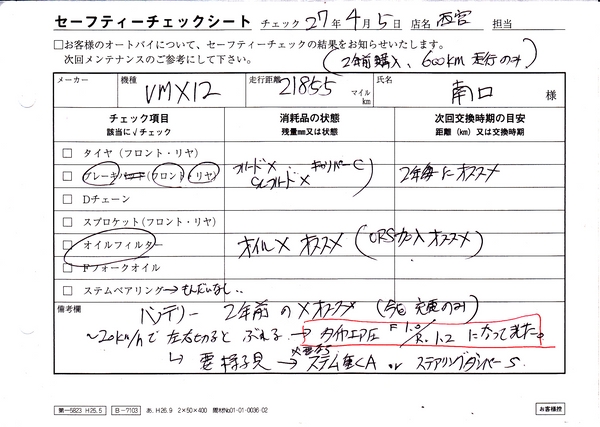 セーフティーチェックシート チェック 27年 4月 5日 店名 西宮 担当
□お客様のオートバイについて、セーフティーチェックの結果をお知らせいたします。
次回メンテナンスのご参考にして下さい。 (2年前購入、600km 走行のみ)
メーカー 機種 VMX12 走行距離 21855 マイル km 氏名 南口 様
チェック項目 該当に√チェック 消耗品の状態 残量mm又は状態 次回交換時期の目安 距離（km）又は交換時期
□ タイヤ（フロント・リヤ）
□ ブレーキ (フロント・リヤ) フルード× キャリパーC 2年毎にオススメ
フルード×
□ Dチェーン
□ スプロケット(フロント・リヤ)
□ オイルフィルター オイル× オススメ (ORS加入オススメ)
□ Fフォークオイル
□ ステムベアリング→もんだいなし..
備考欄 バッテリー 2年前の×オススメ (今は充電のみ)
~20km/hで左右切るとぶれる → タイヤエア圧 F 1.0/R. 1.2 になってました。
↳ 要様子見 → ステム重くA or ステアリングダンパーS.
第一5823 H26.5 B-7103 あ.H26.9 2×50×400 備材No01-01-0036 02 お客様控